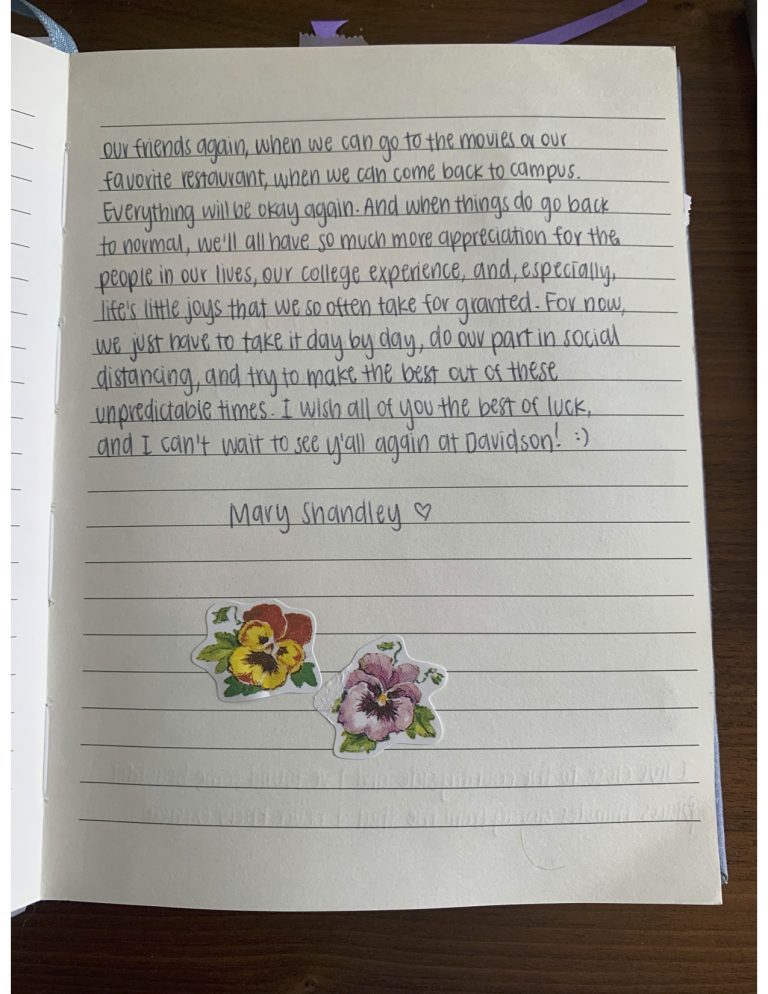 our friends again, when we can go to the movies or our
favorite restaurant, when we can come back to campus.
Everything will be okay again. And when things do go back
to normal, we'll all have so much more appreciation for the
people in our lives, our college experience, and, especially,
life's little joys that we so often take for granted. For now,
we just have to take it day by day, do our part in social
distancing, and try to make the best out of these
unpredictable times. I wish all of you the best of luck,
and I can't wait to see y'all again at Davidson! :)
Mary Shandley ♡